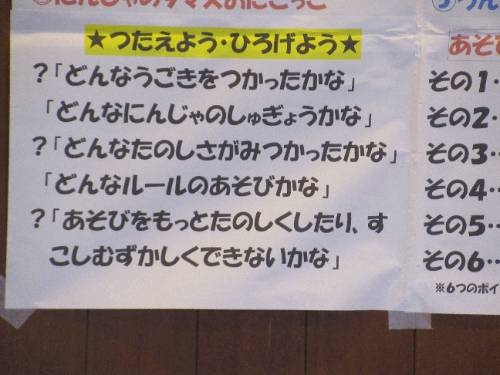 ★つたえよう・ひろげよう★
?「どんなうごきをつかったかな」
「どんなにんじゃのしゅぎょうかな」
?「どんなたのしさがみつかったかな」
「どんなルールのあそびかな」
?「あそびをもっとたのしくしたり、す
こしむずかしくできないかな」
あそび
その1・
その2・・
その3・・
その4・・
その5・・
その6・・
※6つのポイ